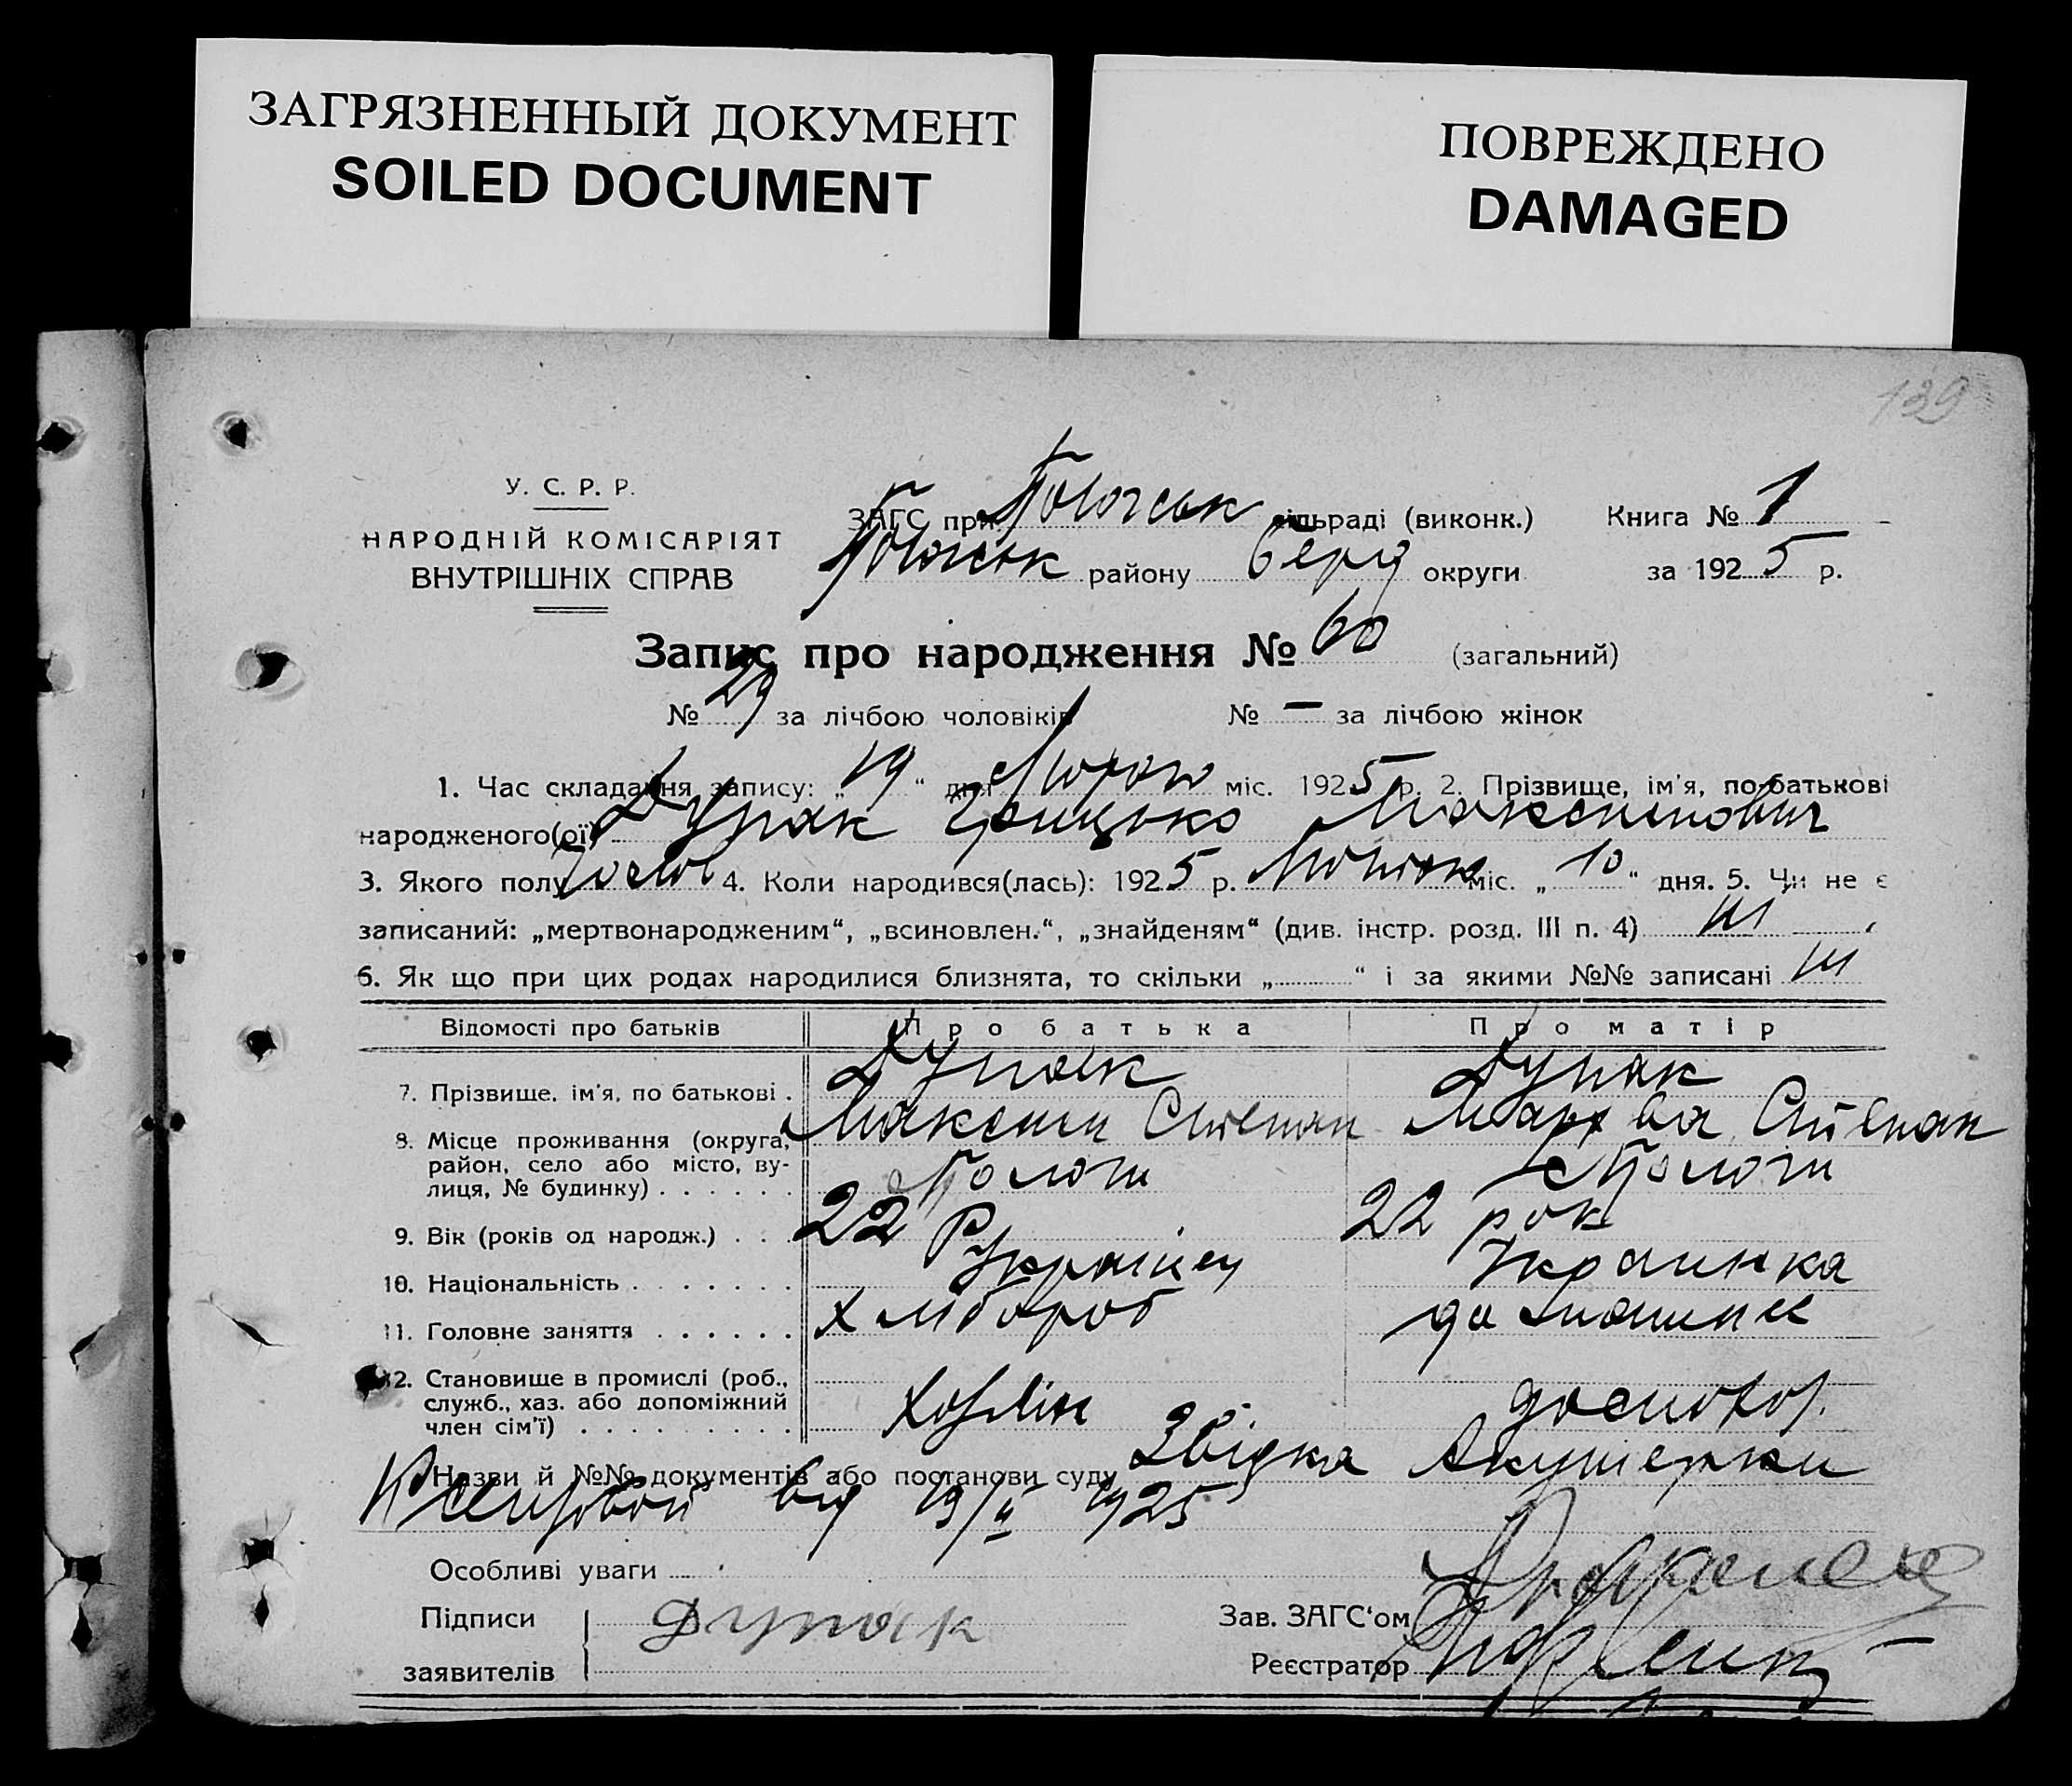 ЗАГРЯЗНЕННЫЙ ДОКУМЕНТ
SOILED DOCUMENT
ПОВРЕЖДЕНО
DAMAGED
139
У. С. Р. Р.
НАРОДНІЙ КОМІСАРІЯТ
ВНУТРІШНІХ СПРАВ
ЗАГС при Пологськ сільраді (виконк.) Книга № 1
Пологськ району Берд округи за 1925 р.
Запис про народження № 60 (загальний)
№ 29 за лічбою чоловіків № — за лічбою жінок
1. Час складання запису: „19“ дня міс. 1925 р. 2. Прізвище, ім'я, по батькові
народженого(ої) Дупак Грицько Максимович
3. Якого полу 4. Коли народився(лась): 1925 р. міс. „10“ дня. 5. Чи не є
записаний: „мертвонародженим“, „всиновлен.“, „знайденям“ (див. інстр. розд. III п. 4)
6. Як що при цих родах народилися близнята, то скільки „ “ і за якими №№ записані
Відомості про батьків Про батька Про матір
7. Прізвище, ім'я, по батькові . Дупак Дупак
Максим Степан Марфа Степан
8. Місце проживання (округа, район, село або місто, вулиця, № будинку) . . . . . . с Пологи с Пологи
9. Вік (років од народж.) . . . 22 Р 22 рок
10. Національність . . . . . . . Українец Украинка
11. Головне заняття . . . . . . Хлібороб домашне
12. Становище в промислі (роб., служб., хаз. або допоміжний член сім'ї) . . . . . . . . . Хазяін
Назви й №№ документів або постанови суду Звідка Акушерки
від 19/II 1925
Особливі уваги
Підписи заявителів Дупак
Зав. ЗАГС'ом
Реєстратор